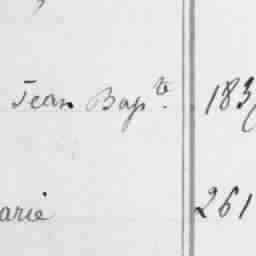 Jean Bapte. 183
arie 261